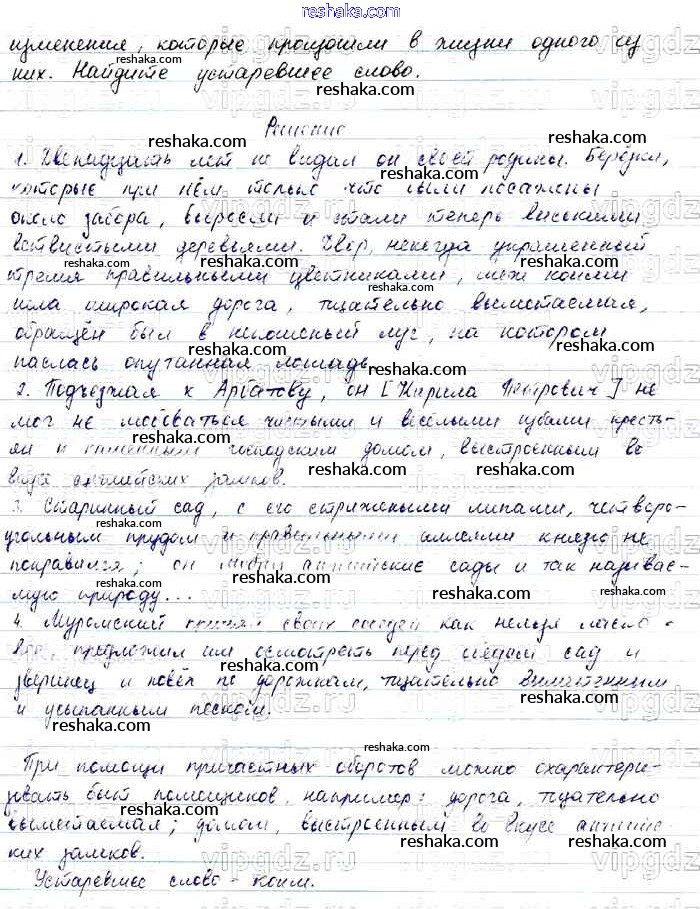 reshaka.com
изменения, которые произошли в жизни одного из
них. Найдите устаревшее слово.
reshaka.com
Решение
reshaka.com
1. Двенадцать лет не видал он своей родины. Берёзки,
reshaka.com
которые при нём только что были посажены
около забора, выросли и стали теперь высокими
reshaka.com
ветвистыми деревьями. Двор, некогда украшенный
тремя правильными цветниками, меж коими
reshaka.com
шла широкая дорога, тщательно выметаемая,
обращён был в некошеный луг, на котором
reshaka.com
паслась опутанная лошадь.
reshaka.com
2. Подъезжая к Арбатову, он [Кирила Петрович] не
мог не любоваться чистыми и весёлыми избами кресть-
reshaka.com
ян и каменным господским домом, выстроенным во
вкусе английских замков.
reshaka.com
3. Старинный сад, с его стрижеными липами, четверо-
reshaka.com
угольным прудом и правильными аллеями князю не
понравился; он любил английские сады и так называе-
reshaka.com
мую природу...
reshaka.com
4. Муромский принял своих соседей как нельзя ласко-
reshaka.com
вее, предложил им осмотреть перед обедом сад и
зверинец и повёл по дорожкам, тщательно выметенным
reshaka.com
и усыпанным песком.
reshaka.com
При помощи причастных оборотов можно охарактери-
зовать быт помещиков, например: дорога, тщательно
reshaka.com
выметаемая; домом, выстроенным во вкусе английс-
ких замков.
reshaka.com
Устаревшее слово - коим.
reshaka.com